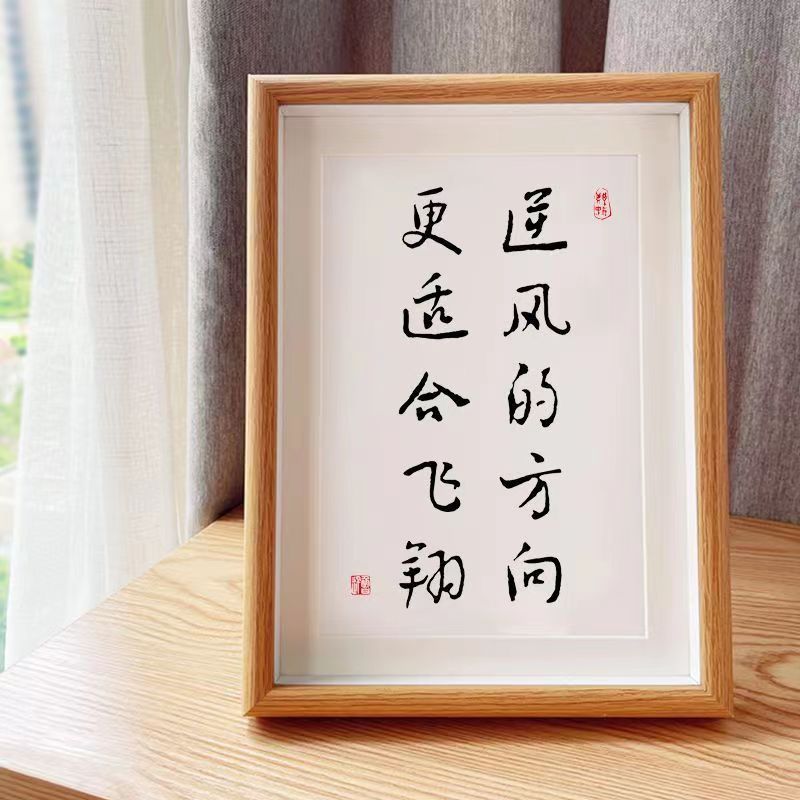 逆风的方向
更适合飞翔